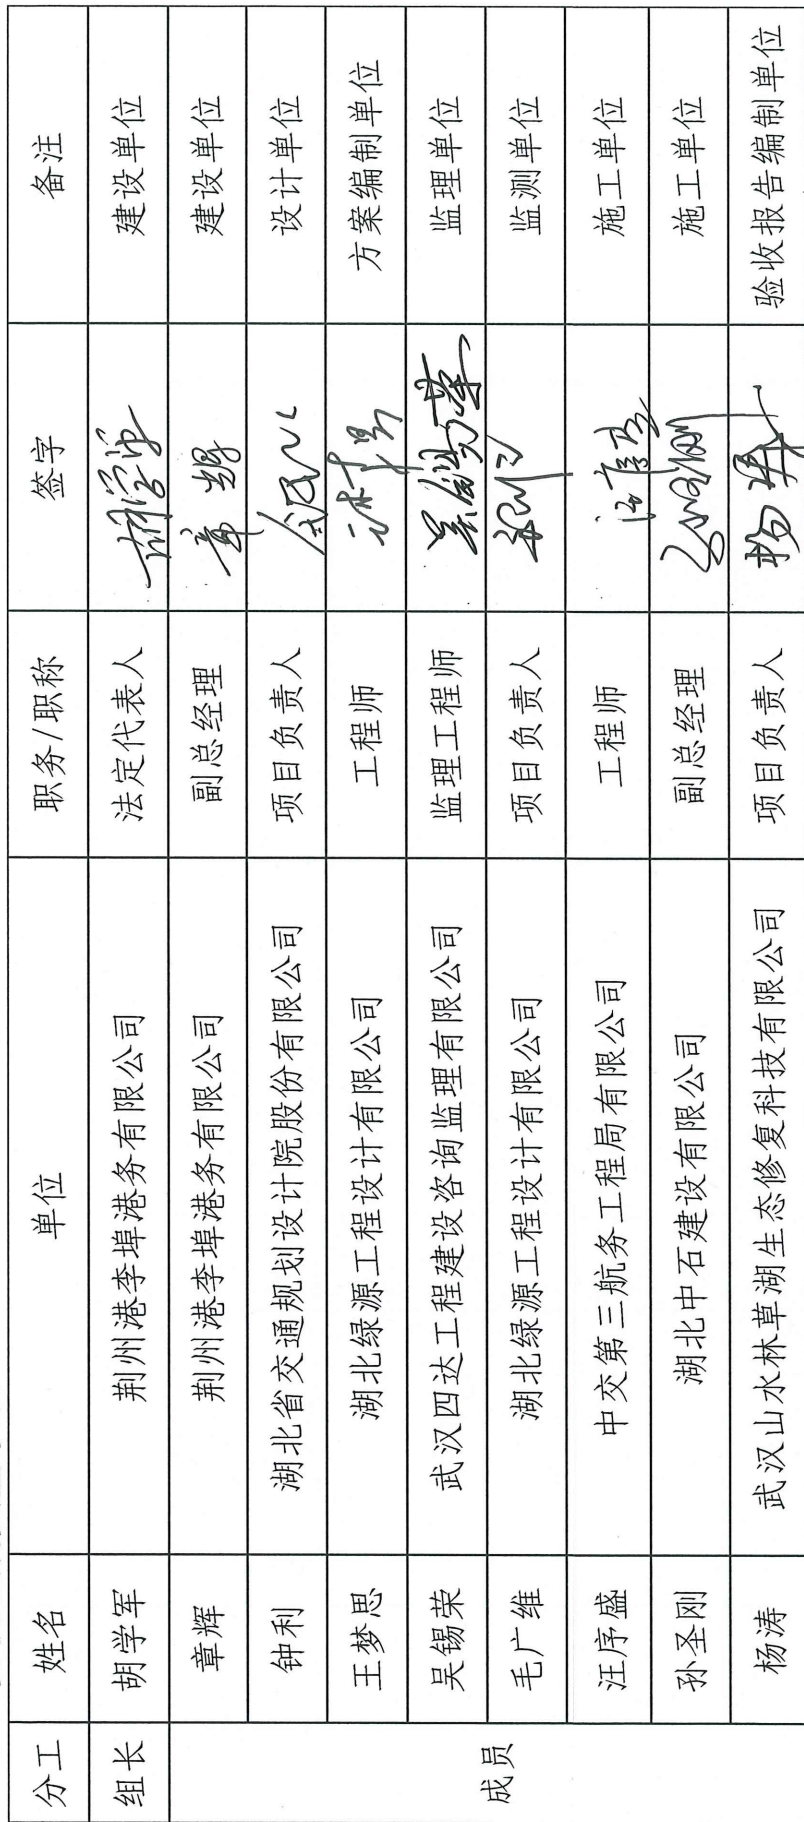 分工 姓名 单位 职务/职称 签字 备注
组长 胡学军 荆州港李埠港务有限公司 法定代表人 胡学军 建设单位
成员 章辉 荆州港李埠港务有限公司 副总经理 章辉 建设单位
钟利 湖北省交通规划设计院股份有限公司 项目负责人 设计单位
王梦思 湖北绿源工程设计有限公司 工程师 方案编制单位
吴锡荣 武汉四达工程建设咨询监理有限公司 监理工程师 吴锡荣 监理单位
毛广维 湖北绿源工程设计有限公司 项目负责人 监测单位
汪序盛 中交第三航务工程局有限公司 工程师 施工单位
孙圣刚 湖北中石建设有限公司 副总经理 施工单位
杨涛 武汉山水林草湖生态修复科技有限公司 项目负责人 验收报告编制单位